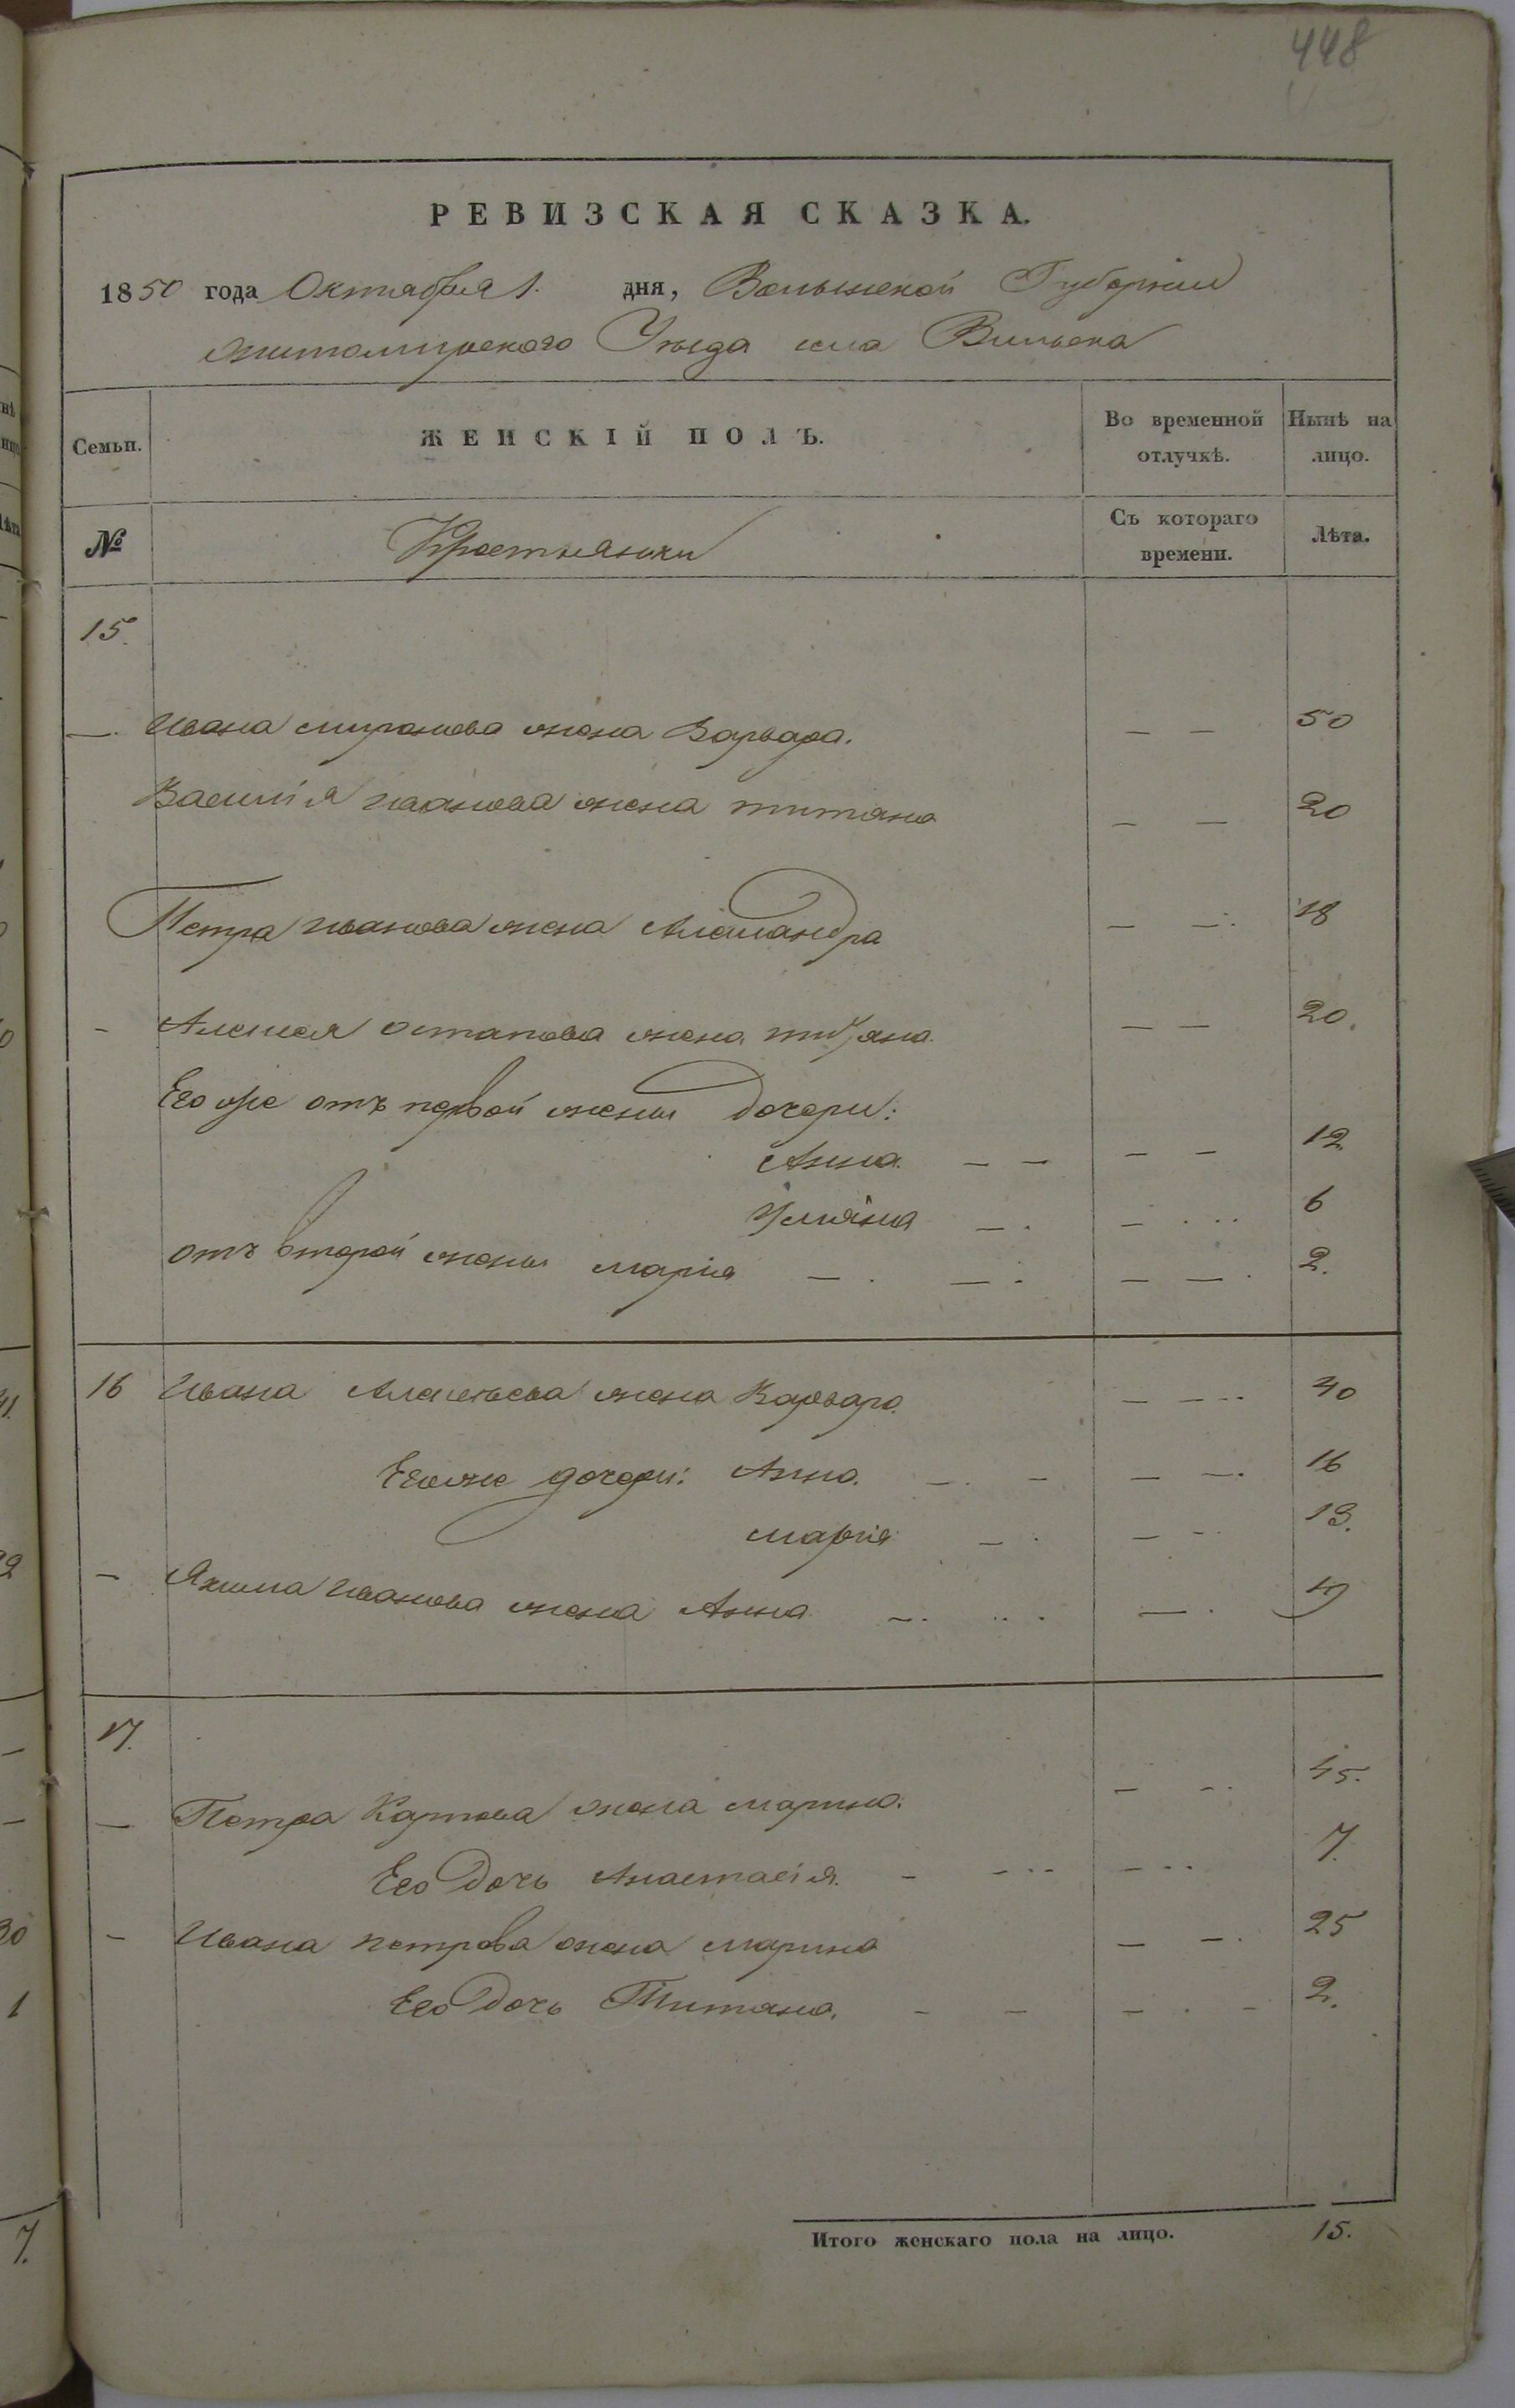 448
РЕВИЗСКАЯ СКАЗКА.
1850 года Октября 1. дня, Волынской Губернии
Житомирского Уезда села Вильска
Семьи. ЖЕНСКІЙ ПОЛЪ. Во временной отлучкѣ. Нынѣ на лицо.
№ Крестьянки Съ котораго времени. Лѣта.
15.
— Ивана миронова жена Варвара. — — 50
Василія иванова жена титяна — — 20
Петра иванова жена Александра — — 18
- Алексея остапова жена титяна — — 20.
Его же отъ первой жены дочери:
Анна. — — — — 12
Улияна — . — 6
отъ второй жены марія — . — — — 2.
16 Ивана Алексеева жена Варвара — — 40
Егоже дочери: Анна. — - — — 16
марія — . — - 13.
— Якима Иванова жена Анна — . — . 19
17.
— Петра Карпова жена марина. — - 45.
Его дочь Анастасія. - - — 7.
- Ивана петрова жена марина — - 25
Его дочь Титяна. - - - . - 2.
Итого женскаго пола на лицо. 15.